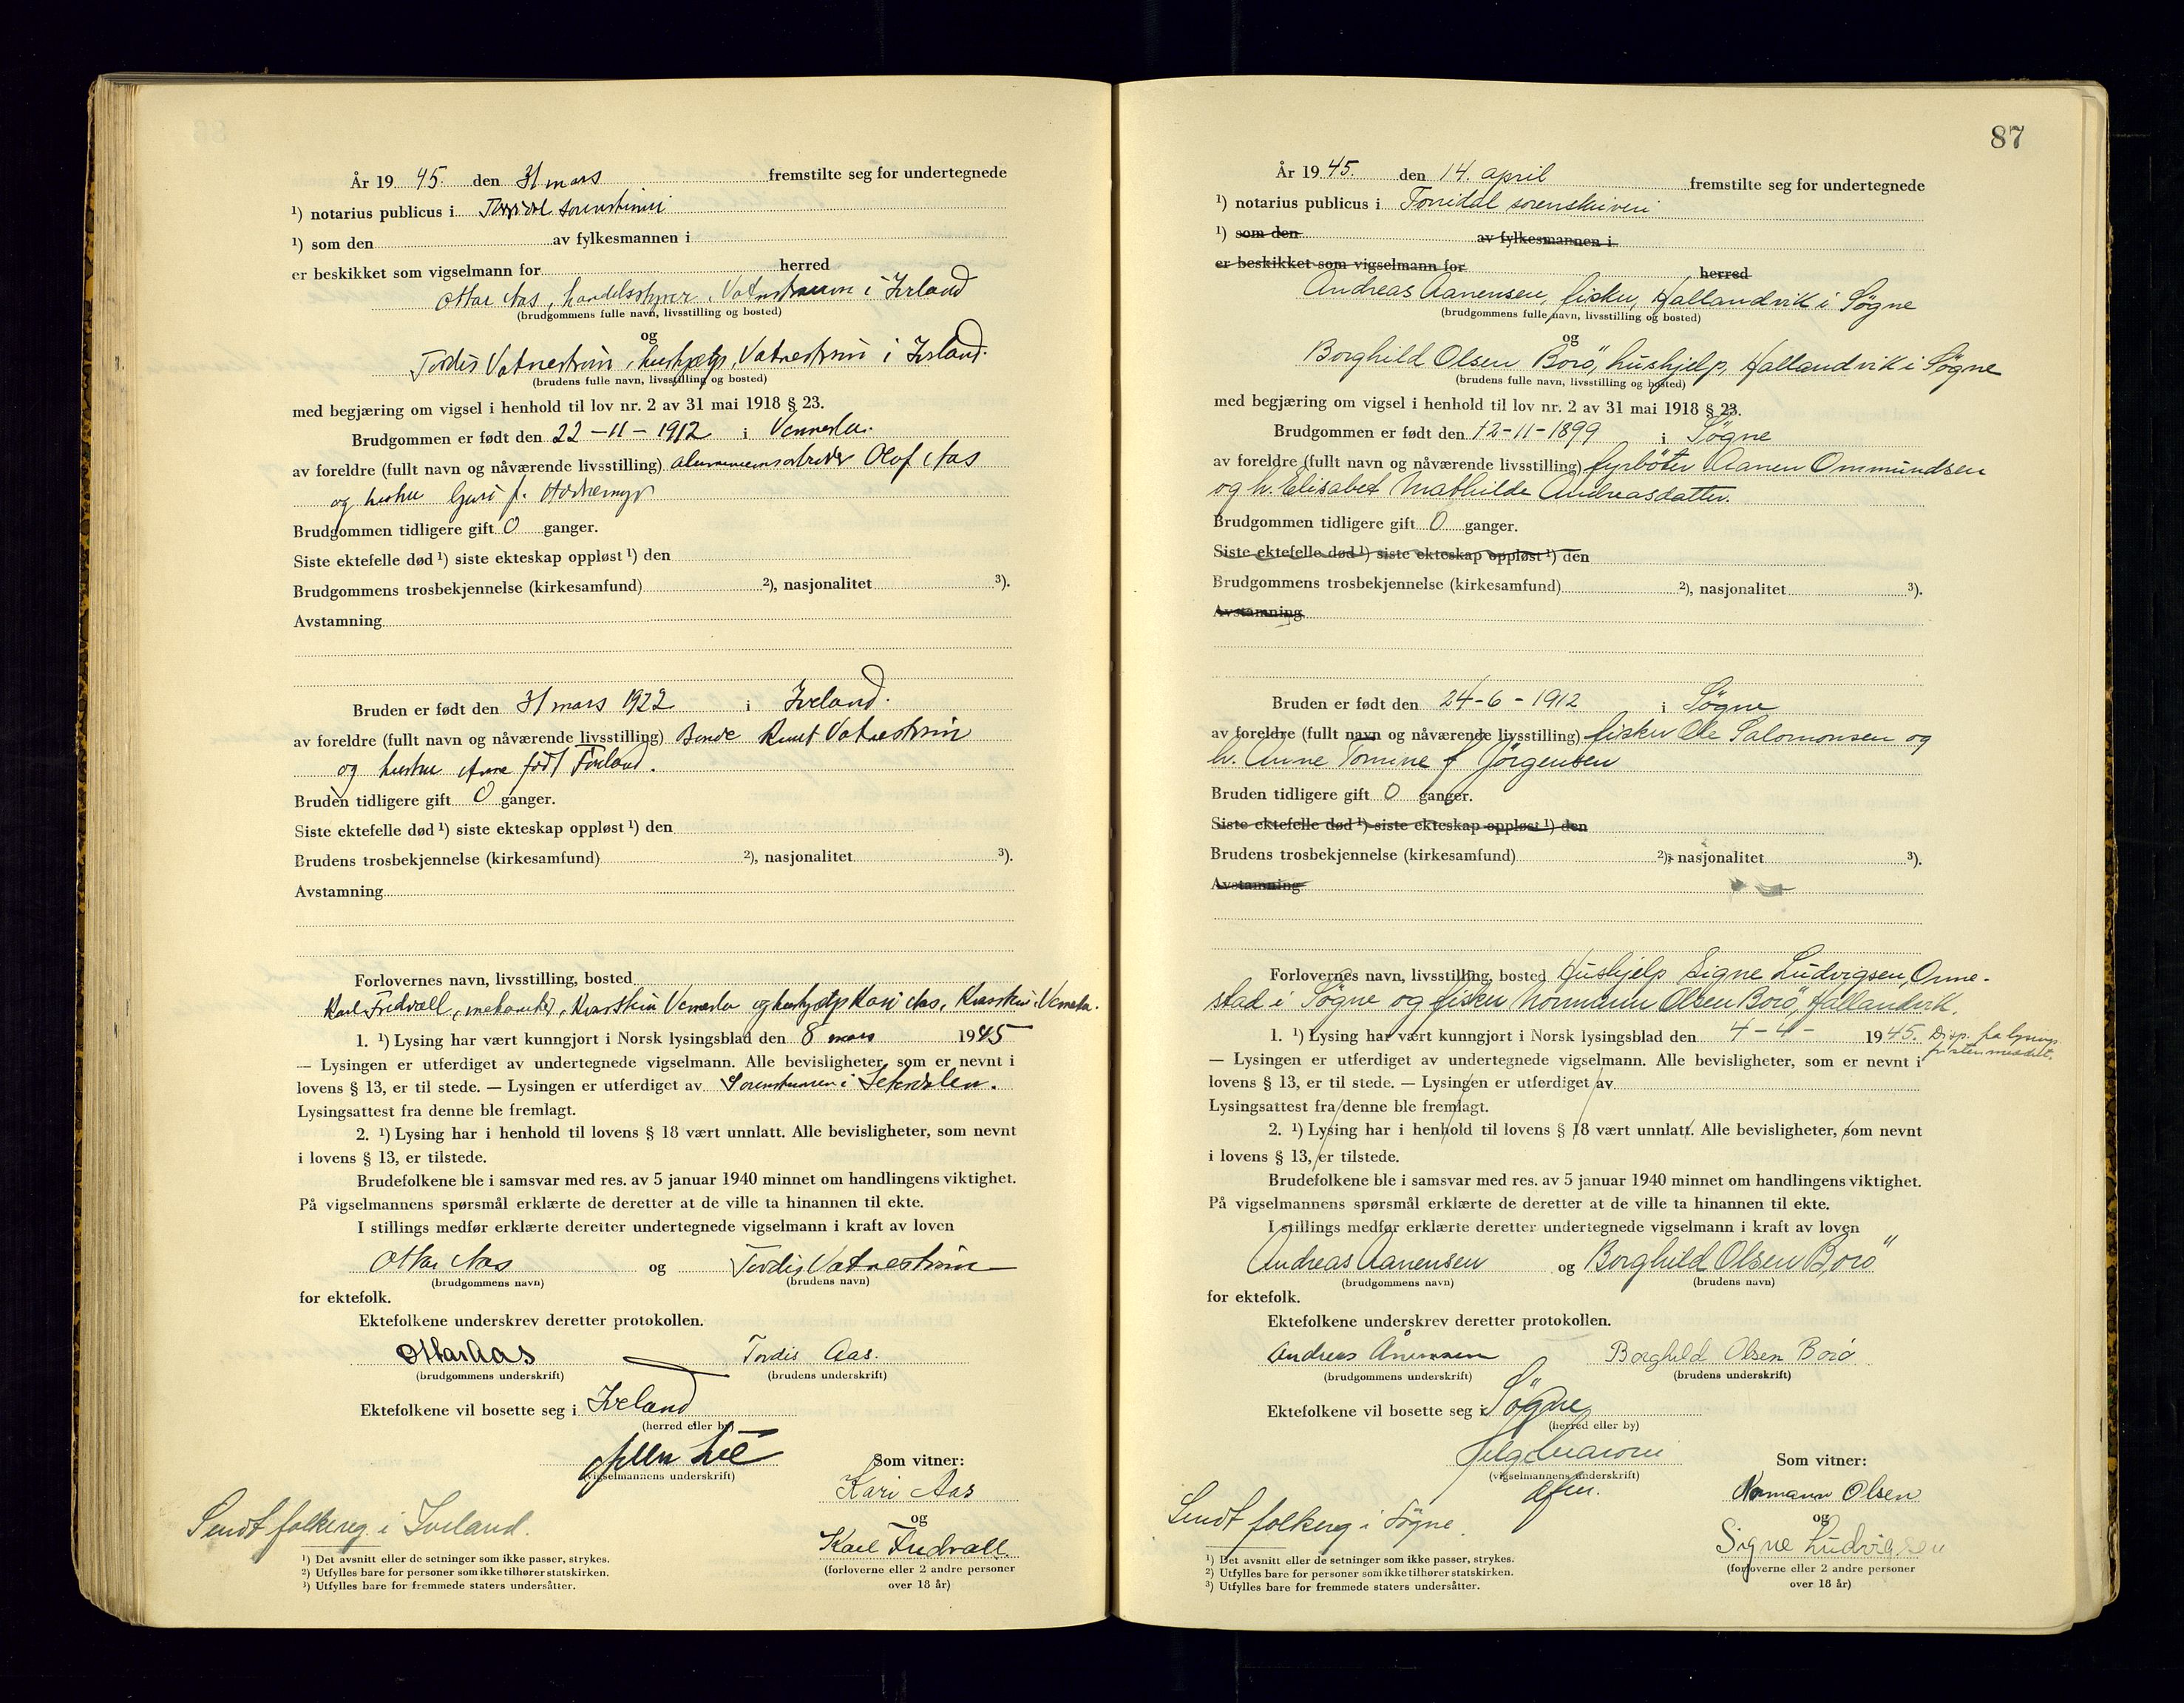 År 1945. den 31 mars fremstilte seg for undertegnede
¹) notarius publicus i Torridal sorenskriveri
¹) som den av fylkesmannen i
er beskikket som vigselmann for herred
Ottar Aas, handelsstyrer, Vatnestraum i Iveland
(brudgommens fulle navn, livsstilling og bosted)
og
Tordis Vatnestrøm, hushjelp, Vatnestrøm i Iveland.
(brudens fulle navn, livsstilling og bosted)
med begjæring om vigsel i henhold til lov nr. 2 av 31 mai 1918 § 23.
Brudgommen er født den 22-11-1912 i Vennesla.
av foreldre (fullt navn og nåværende livsstilling) aluminiumsarbeider Olof Aas
og hustru Guri f.
Brudgommen tidligere gift 0 ganger.
Siste ektefelle død ¹) siste ekteskap oppløst ¹) den
Brudgommens trosbekjennelse (kirkesamfund) ²), nasjonalitet ³).
Avstamning
Bruden er født den 31 mars 1922 i Iveland.
av foreldre (fullt navn og nåværende livsstilling) Bonde Knut Vatnestrøm
og hustru Anne født Frøland.
Bruden tidligere gift 0 ganger.
Siste ektefelle død ¹) siste ekteskap oppløst ¹) den
Brudens trosbekjennelse (kirkesamfund) ²), nasjonalitet ³).
Avstamning
Forlovernes navn, livsstilling, bosted
Karl Fredvall, mekaniker, Vennesla og hushjelp Kari Aas, Vennesla.
1. ¹) Lysing har vært kunngjort i Norsk lysingsblad den 8 mars 1945
— Lysingen er utferdiget av undertegnede vigselmann. Alle bevisligheter, som er nevnt i
lovens § 13, er til stede. — Lysingen er utferdiget av Sorenskriveren i Setesdalen.
Lysingsattest fra denne ble fremlagt.
2. ¹) Lysing har i henhold til lovens § 18 vært unnlatt. Alle bevisligheter, som nevnt
i lovens § 13, er tilstede.
Brudefolkene ble i samsvar med res. av 5 januar 1940 minnet om handlingens viktighet.
På vigselmannens spørsmål erklærte de deretter at de ville ta hinannen til ekte.
I stillings medfør erklærte deretter undertegnede vigselmann i kraft av loven
Ottar Aas og Tordis Vatnestrøm
(brudgommens navn) (brudens navn)
for ektefolk.
Ektefolkene underskrev deretter protokollen.
Ottar Aas Tordis Aas.
(brudgommens underskrift) (brudens underskrift)
Ektefolkene vil bosette seg i Iveland
(herred eller by)
(vigselmannens underskrift)
Som vitner:
Kari Aas
og
Karl Fredvall
(forloverne eller 2 andre personer
over 18 år)
Sendt folkereg. i Iveland.
¹) Det avsnitt eller de setninger som ikke passer, strykes.
²) Utfylles bare for personer som ikke tilhører statskirken.
³) Utfylles bare for fremmede staters undersåtter.
87
År 1945. den 14. april fremstilte seg for undertegnede
¹) notarius publicus i Torridal sorenskriveri
¹) som den av fylkesmannen i
er beskikket som vigselmann for herred
Andreas Aanensen, fisker, Hallandvik i Søgne
(brudgommens fulle navn, livsstilling og bosted)
og
Borghild Olsen Borö, hushjelp, Hallandvik i Søgne
(brudens fulle navn, livsstilling og bosted)
med begjæring om vigsel i henhold til lov nr. 2 av 31 mai 1918 § 23.
Brudgommen er født den 12-11-1899 i Søgne
av foreldre (fullt navn og nåværende livsstilling) fyrbøter Aanen Ommundsen
og h. Elisabet Mathilde Andreasdatter.
Brudgommen tidligere gift 0 ganger.
Siste ektefelle død ¹) siste ekteskap oppløst ¹) den
Brudgommens trosbekjennelse (kirkesamfund) ²), nasjonalitet ³).
Avstamning
Bruden er født den 24-6-1912 i Søgne
av foreldre (fullt navn og nåværende livsstilling) fisker Ole Salomonsen og
h. Anne Tomine f Jørgensen
Bruden tidligere gift 0 ganger.
Siste ektefelle død ¹) siste ekteskap oppløst ¹) den
Brudens trosbekjennelse (kirkesamfund) ²), nasjonalitet ³).
Avstamning
Forlovernes navn, livsstilling, bosted Hushjelp Signe Ludvigsen, Onne-
stad i Søgne og fisker Normann Olsen Borö, Hallandvik.
1. ¹) Lysing har vært kunngjort i Norsk lysingsblad den 4-4- 1945. Disp. fra lysings
fristen meddelt.
— Lysingen er utferdiget av undertegnede vigselmann. Alle bevisligheter, som er nevnt i
lovens § 13, er til stede. — Lysingen er utferdiget av
Lysingsattest fra denne ble fremlagt.
2. ¹) Lysing har i henhold til lovens § 18 vært unnlatt. Alle bevisligheter, som nevnt
i lovens § 13, er tilstede.
Brudefolkene ble i samsvar med res. av 5 januar 1940 minnet om handlingens viktighet.
På vigselmannens spørsmål erklærte de deretter at de ville ta hinannen til ekte.
I stillings medfør erklærte deretter undertegnede vigselmann i kraft av loven
Andreas Aanensen og Borghild Olsen Borö
(brudgommens navn) (brudens navn)
for ektefolk.
Ektefolkene underskrev deretter protokollen.
Andreas Ånensen Borghild Olsen Borö
(brudgommens underskrift) (brudens underskrift)
Ektefolkene vil bosette seg i Søgne
(herred eller by)
(vigselmannens underskrift)
Som vitner:
Normann Olsen
og
Signe Ludvigsen
(forloverne eller 2 andre personer
over 18 år)
Sendt folkereg i Søgne.
¹) Det avsnitt eller de setninger som ikke passer, strykes.
²) Utfylles bare for personer som ikke tilhører statskirken.
³) Utfylles bare for fremmede staters undersåtter.